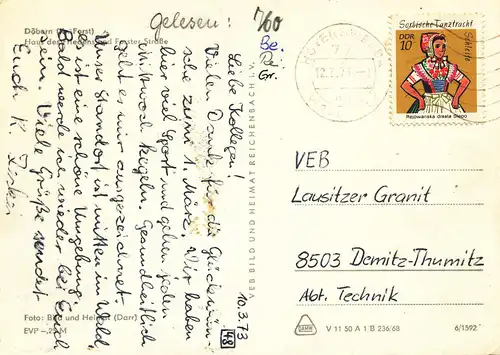 Döbern (Kr. Forst)
Haus des Friedens und Forster Straße
Gelesen:
Be.
Gr.
Sorbische Tanztracht
Schleife
DDR
10
Rejowanska drasta Slepo
Liebe Kollegen!
Vielen Dank für die Glückwün-
sche zum 1. März. Wir haben
hier viel Sport und gehen jeden
Mittwoch kegeln. Gesundheitlich
geht es mir ausgezeichnet.
Unser Standort ist mitten im Wald,
es ist eine schöne Umgebung.
Bald werde ich wieder bei Euch
sein. Viele Grüße sendet
Euch K.
10.3.73
48
VEB BILD UND HEIMAT REICHENBACH I. V.
VEB
Lausitzer Granit
8503 Demitz-Thumitz
Abt. Technik
Foto: Bild und Heimat (Darr)
EVP -,20 M
V 11 50 A 1 B 236/68
6/1592